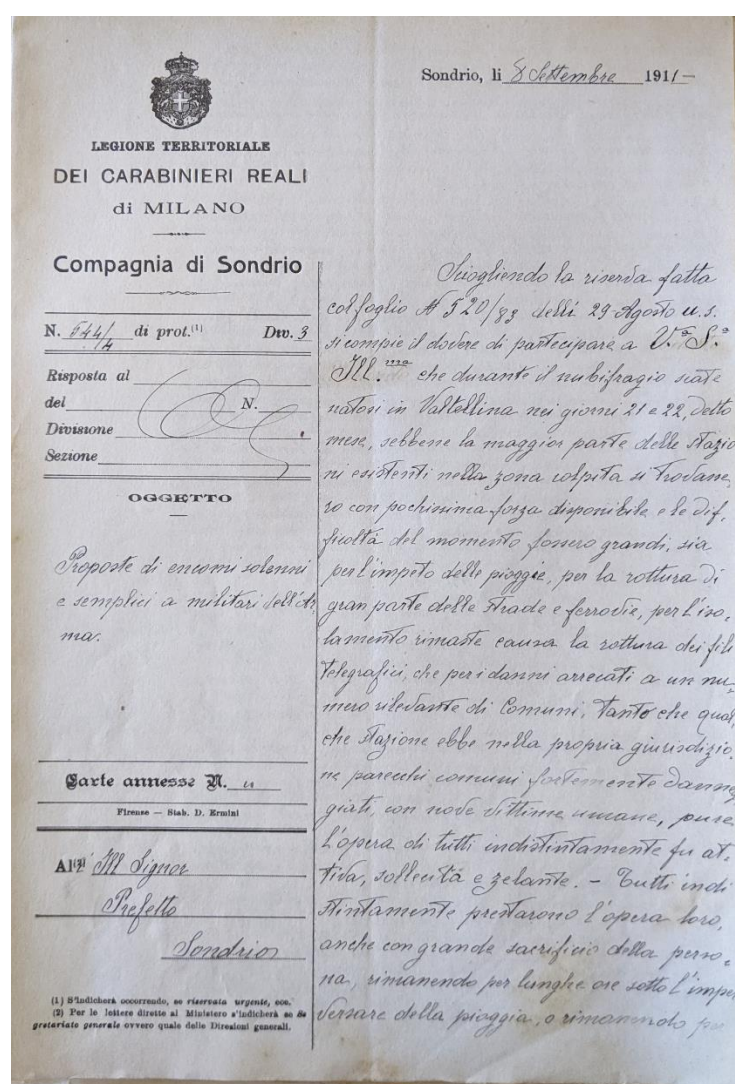 Sondrio, li 8 Settembre 1911 -
LEGIONE TERRITORIALE
DEI CARABINIERI REALI
di MILANO
Compagnia di Sondrio
N. 544/4 di prot.(1) Div. 3
Risposta al
del N.
Divisione
Sezione
OGGETTO
Proposte di encomi solenni
e semplici a militari dell'Ar,
ma.
Carte annesse N. 11
Firenze — Stab. D. Ermini
Al(2) Ill Signor
Prefetto
Sondrio
(1) S'indicherà occorrendo, se riservata urgente, ecc.
(2) Per le lettere dirette al Ministero s'indicherà se Se
gretariato generale ovvero quale delle Direzioni generali.
Sciogliendo la riserva fatta
col foglio N 520/83 delli 29 Agosto u. s.
si compie il dovere di partecipare a V.a S.a
Ill.ma che durante il nubifragio scate
natosi in Valtellina nei giorni 21 e 22, detto
mese, sebbene la maggior parte delle stazio
ni esistenti nella zona colpita si trovane,
ro con pochissima forza disponibile e le dif,
ficoltà del momento fossero grandi, sia
per l'impeto delle pioggie, per la rottura di
gran parte delle strade e ferrovie, per l'iso,
lamento rimaste causa la rottura dei fili
telegrafici, che per i danni arrecati a un nu,
mero rilevante di Comuni, tanto che qual,
che stazione ebbe nella propria giurisdizio,
ne parecchi comuni fortemente danneg
giati, con nove vittime umane, pure
l'opera di tutti indistintamente fu at,
tiva, sollecita e zelante. - Tutti indi
stintamente prestarono l'opera loro,
anche con grande sacrificio della perso,
na, rimanendo per lunghe ore sotto l'imper
versare della pioggia, o rimanendo per